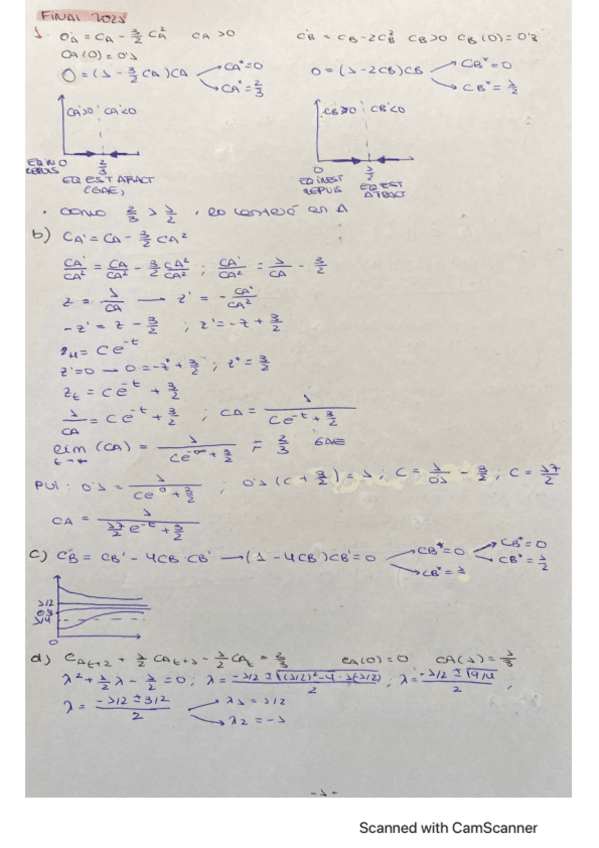 FINAL 2023
1. CA' = CA - 3/2 CA² CA>0 CB' = CB - 2CB² CB>0 CB(0) = 0'3
CA(0) = 0'1
0 = (1 - 3/2 CA) CA CA* = 0 CA* = 2/3 0 = (1 - 2CB) CB CB* = 0 CB* = 1/2
CA'>0 CA'<0 CB'>0 CB'<0
0 2/3 0 1/2
EQ EST ATRACT (GAE) EQ INEST REPULS EQ EST ATRACT
• como 2/3 > 1/2, en A
b) CA' = CA - 3/2 CA²
CA'/CA² = CA/CA² - 3/2 CA²/CA² ; CA'/CA² = 1/CA - 3/2
z = 1/CA → z' = - CA'/CA²
-z' = z - 3/2 ; z' = -z + 3/2
zH = Ce^-t
z' = 0 → 0 = -z* + 3/2 ; z* = 3/2
zt = Ce^-t + 3/2
1/CA = Ce^-t + 3/2 ; CA = 1/(Ce^-t + 3/2)
lim t→∞ (CA) = 1/(Ce^-∞ + 3/2) = 2/3 GAE
PVI: 0'1 = 1/(Ce^0 + 3/2) ; 0'1 (C + 3/2) = 1 ; C = 1/0'1 - 3/2 ; C = 17/2
CA = 1/(17/2 e^-t + 3/2)
c) CB'' = CB' - 4CB CB' → (1 - 4CB) CB' = 0 CB' = 0 CB* = 0 CB* = 1/2
1/2
0'3
1/4
0
d) CAt+2 + 1/2 CAt+1 - 1/2 CAt = 2/3 CA(0) = 0 CA(1) = 1/3
λ² + 1/2 λ - 1/2 = 0 ; λ = (-1/2 ± √((1/2)² - 4·1(-1/2)))/2 ; λ = (-1/2 ± √9/4)/2 ;
λ = (-1/2 ± 3/2)/2 λ1 = 1/2 λ2 = -1
- 1 -
Scanned with CamScanner